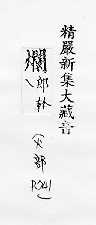 精嚴新集大藏音
爛 郎幹 (火部 P041)